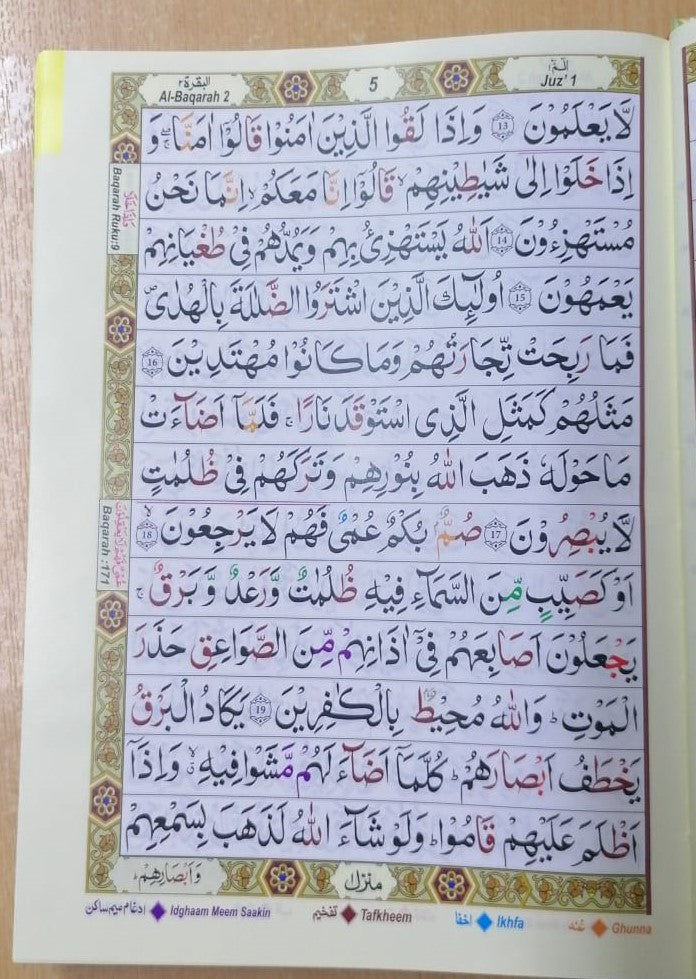 البقرة ٢
Al-Baqarah 2
5
الٓمّٓ ١
Juz' 1
لَّا يَعْلَمُوْنَ 13 وَاِذَا لَقُوا الَّذِيْنَ اٰمَنُوْا قَالُوْٓا اٰمَنَّا ۚۖ وَ
اِذَا خَلَوْا اِلٰى شَيٰطِيْنِهِمْ ۙ قَالُوْٓا اِنَّا مَعَكُمْ ۙ اِنَّمَا نَحْنُ
مُسْتَهْزِءُوْنَ 14 اَللّٰهُ يَسْتَهْزِئُ بِهِمْ وَيَمُدُّهُمْ فِىْ طُغْيَانِهِمْ
يَعْمَهُوْنَ 15 اُولٰٓئِكَ الَّذِيْنَ اشْتَرَوُا الضَّلٰلَةَ بِالْهُدٰى ۖ
فَمَا رَبِحَتْ تِّجَارَتُهُمْ وَمَا كَانُوْا مُهْتَدِيْنَ 16
مَثَلُهُمْ كَمَثَلِ الَّذِى اسْتَوْقَدَ نَارًا ۚ فَلَمَّآ اَضَآءَتْ
مَا حَوْلَهٗ ذَهَبَ اللّٰهُ بِنُوْرِهِمْ وَتَرَكَهُمْ فِىْ ظُلُمٰتٍ
لَّا يُبْصِرُوْنَ 17 صُمٌّۢ بُكْمٌ عُمْىٌ فَهُمْ لَا يَرْجِعُوْنَ 18 ۙ
اَوْ كَصَيِّبٍ مِّنَ السَّمَآءِ فِيْهِ ظُلُمٰتٌ وَّرَعْدٌ وَّبَرْقٌ ۚ
يَجْعَلُوْنَ اَصَابِعَهُمْ فِىْٓ اٰذَانِهِمْ مِّنَ الصَّوَاعِقِ حَذَرَ
الْمَوْتِ ؕ وَاللّٰهُ مُحِيْطٌۢ بِالْكٰفِرِيْنَ 19 يَكَادُ الْبَرْقُ
يَخْطَفُ اَبْصَارَهُمْ ؕ كُلَّمَآ اَضَآءَ لَهُمْ مَّشَوْا فِيْهِ ۙ وَاِذَآ
اَظْلَمَ عَلَيْهِمْ قَامُوْا ؕ وَلَوْ شَآءَ اللّٰهُ لَذَهَبَ بِسَمْعِهِمْ
Baqarah Ruku:9
Baqarah :171
منزل
وَاَبْصَارِهِمْ ؕ
غنه Ghunna
اخفا Ikhfa
تفخيم Tafkheem
ادغام ميم ساكن Idghaam Meem Saakin